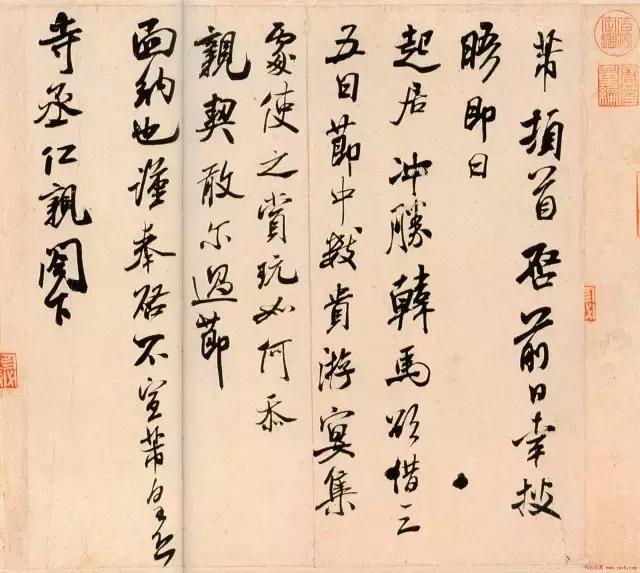 芾頓首启前日幸披
晤即日
起居冲勝韓馬欲借三
五日節中數貴游宴集
處使之賞玩如何忝
親契敢尓過節
面納也謹奉啓不宣芾皇恐
寺丞仁親閣下